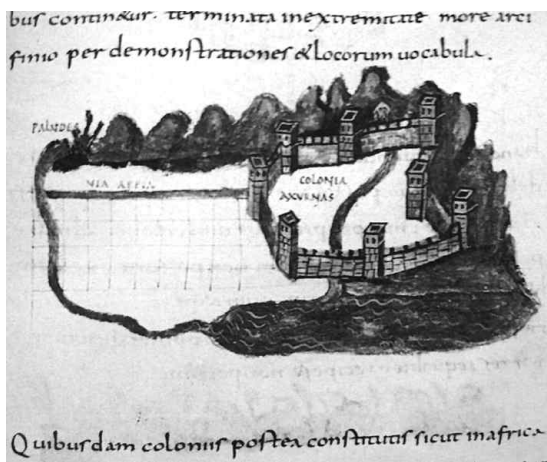 bus continẽtur. terminata inextremitate more arci
finio per demonstrationes & locorum uocabula.
PALUDES
VIA APPIA
COLONIA
AXVRNAS
Quibusdam coloniis postea constitutis sicut inafrica